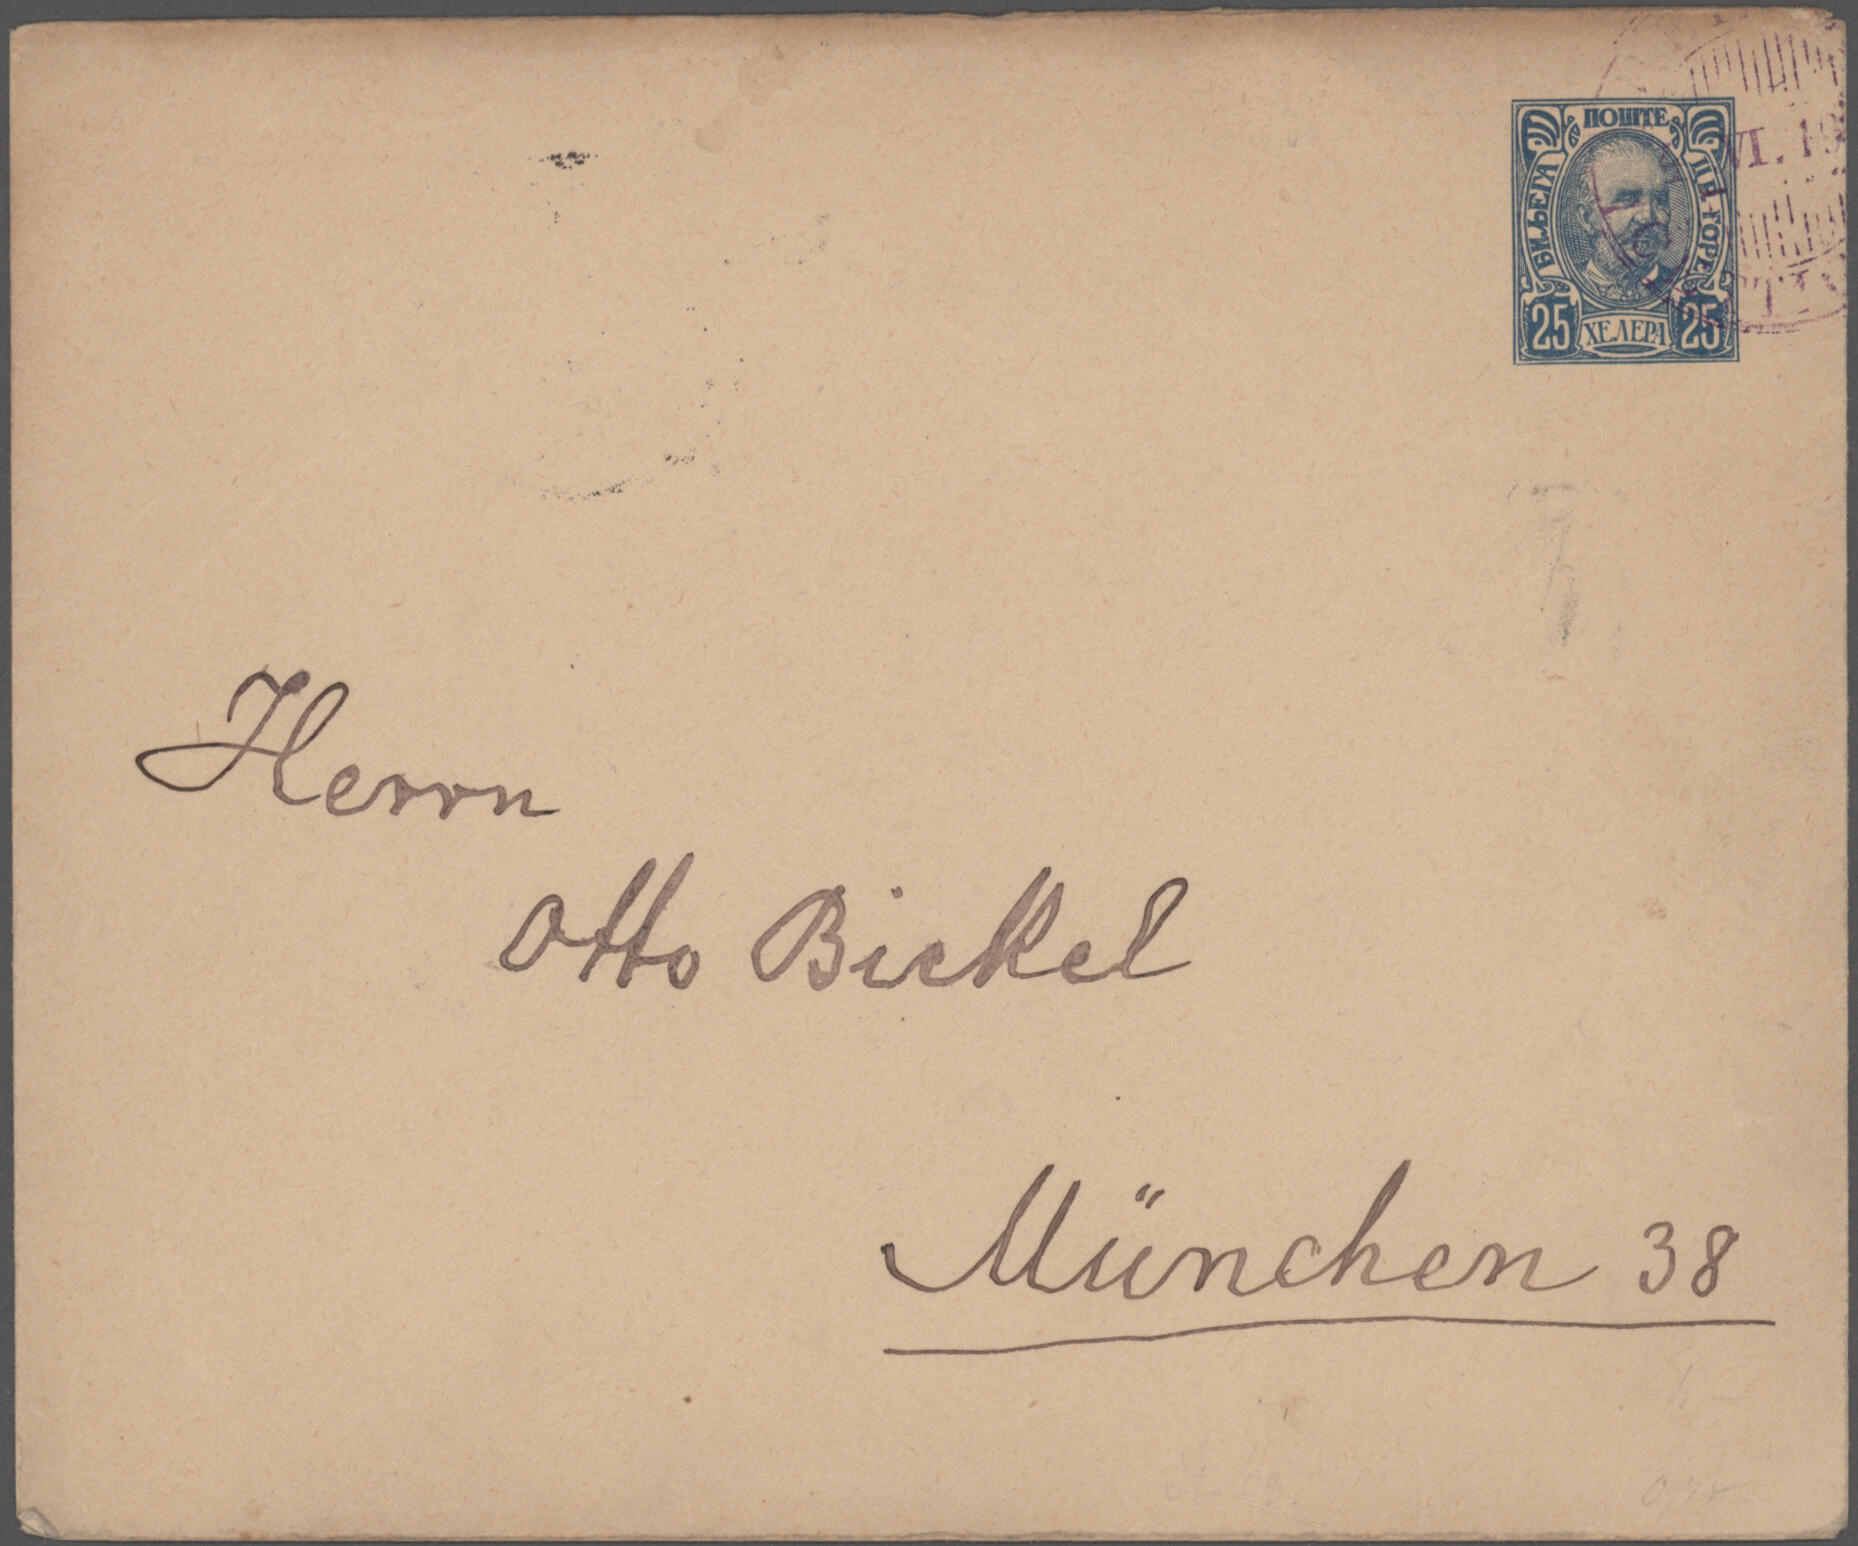 ПОШТЕ
БИЉЕГА
ЦР. ГОРЕ
25 ХЕЛЕРА 25
VI. 19
Herrn
Otto Bickel
München 38